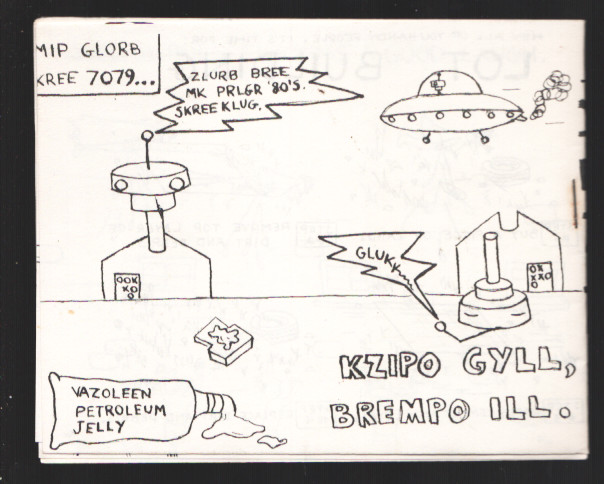 MIP GLORB
KREE 7079...
ZLURB BREE
MK PRLGR '80'S.
SKREE KLUG.
OOX
XO
O
GLUKK
OX
XXO
O
KZIPO GYLL,
BREMPO ILL.
VAZOLEEN
PETROLEUM
JELLY